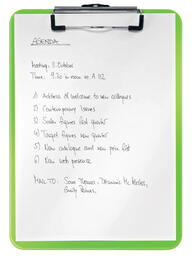 AGENDA
Meeting: 11. October
Time: 9.30 in room no. A 112
1) Address of welcome to new collegues
2) Contemporary Issues
3) Sales figures last quarter
4) Target figures new quarter
5) New catalogue and new price list
6) New web presence
MAIL TO: Sam Thomas, Dominic Mc
Emily